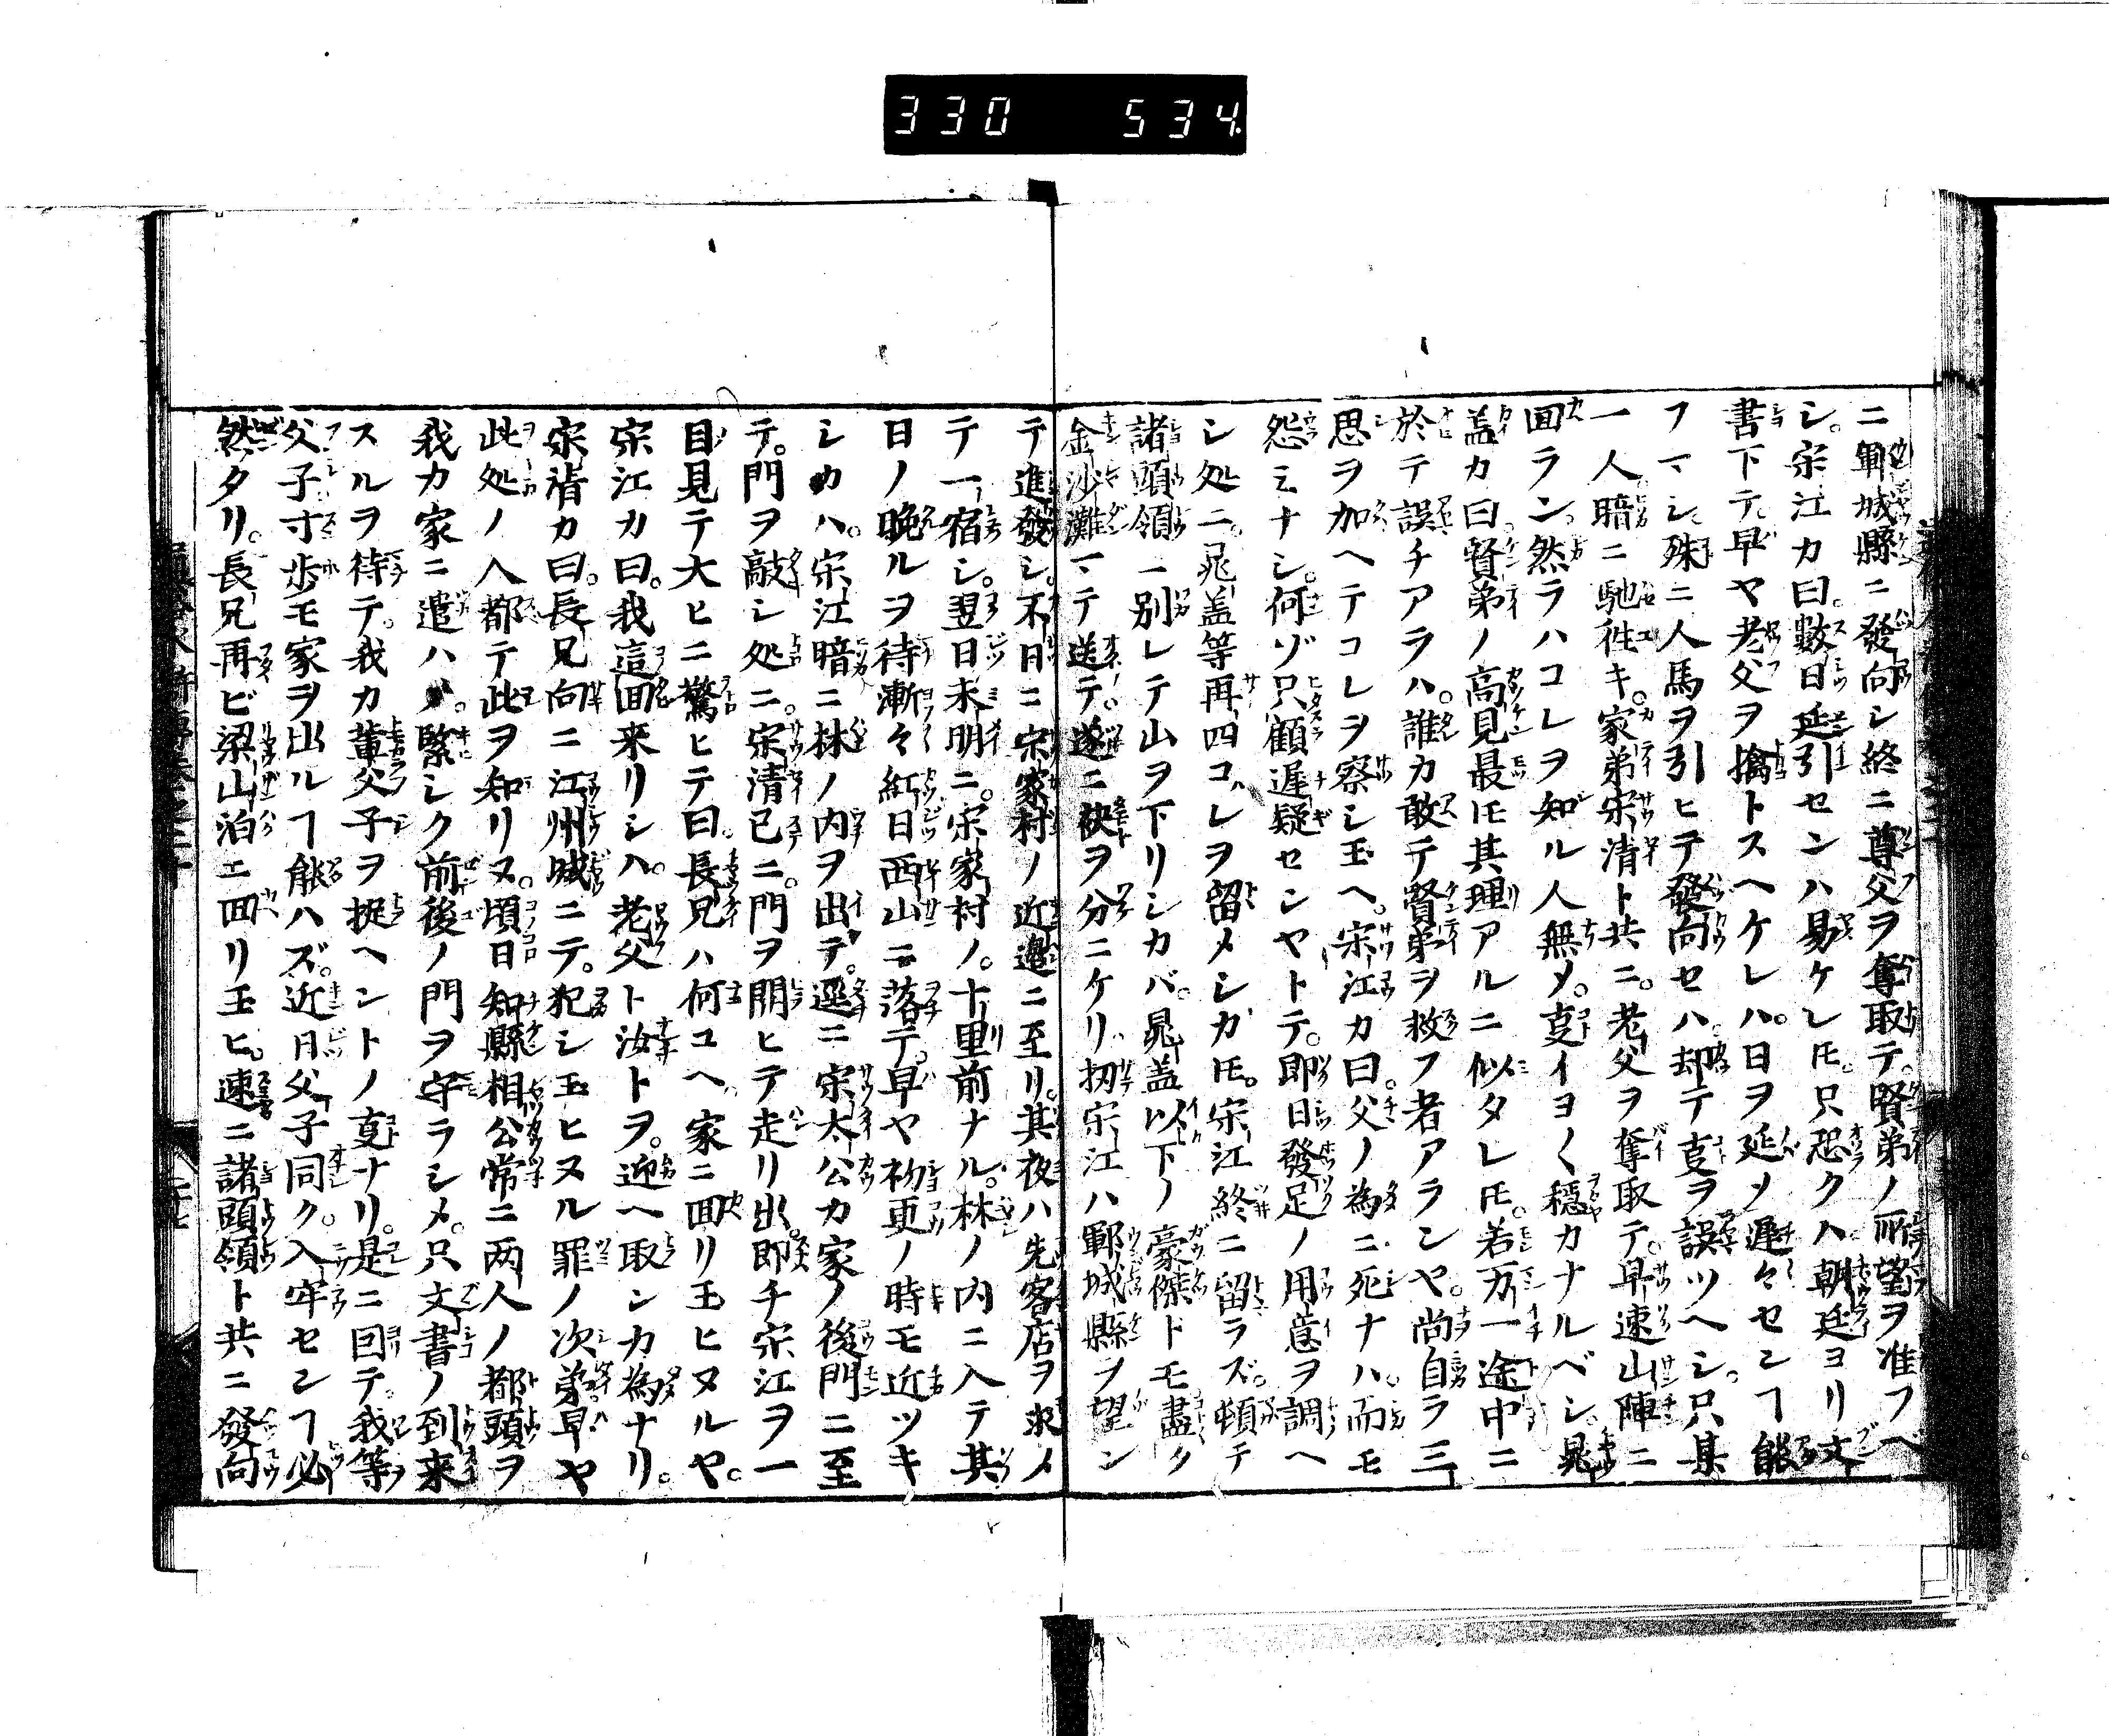 330 534.
ニ鄆城縣ニ發向シ終ニ尊父ヲ奪取テ。賢弟ノ所望ヲ准フベ
シ。宋江カ曰。數日延引センハ易ケレ𪜈。只恐クハ朝廷ヨリ文
書下テ。早ヤ老父ヲ擒トスヘケレハ。日ヲ延ソ遲々セシヿ能
フマシ。殊ニ人馬ヲ引ヒテ發向セハ。却テ㕝ヲ誤ツヘシ。只某
一人暗ニ馳徃キ。家弟宋清ト共ニ。老父ヲ奪取テ。早速山陣ニ
回ラン。然ラハコレヲ知ル人無メ。㕝イヨ〱穏カナルベシ。晁
盖カ曰。賢弟ノ高見最𪜈其理アルニ似タレ𪜈。若万一途中ニ
於テ誤チアラハ。誰カ敢テ賢弟ヲ救フ者アランヤ。尚自ラ三
思ヲ加ヘテコレヲ察シ玉ヘ。宋江カ曰。父ノ為ニ死ナハ。而モ
怨ミナシ。何ゾ只顧遲疑センヤトテ。即日發足ノ用意ヲ調ヘ
シ処ニ。晁盖等再四コレヲ留メシカ𪜈。宋江終ニ留ラズ。頓テ
諸頭領ニ別レテ山ヲ下リシカバ。晁盖以下ノ豪傑ドモ盡ク
金沙灘マテ送テ。遂ニ袂ヲ分ニケリ扨宋江ハ鄆城縣ヲ望ン
テ進發シ。不日ニ宋家村ノ近邊ニ至リ。其夜ハ先客店ヲ求メ
テ一宿シ。翌日未明ニ。宋家村ノ。十里前ナル。林ノ内ニ入テ其
日ノ晩ルヲ待漸々紅日西山ニ落テ。早ヤ初更ノ時モ近ツキ
シカハ。宋江暗ニ林ノ内ヲ出テ。逕ニ宋太公カ家ノ後門ニ至
テ。門ヲ敲シ処ニ。宋清已ニ。門ヲ開ヒテ走リ出。即チ宋江ヲ一
目見テ大ヒニ驚ヒテ曰。長兄ハ何ユヘ。家ニ回リ玉ヒヌルヤ。
宋江カ曰。我這回来リシハ。老父ト汝トヲ。迎ヘ取ンカ為ナリ。
宋清カ曰。長兄向ニ江州城ニテ。犯シ玉ヒヌル罪ノ次弟早ヤ
此処ノ人都テ此ヲ知リヌ。頃日知縣相公常ニ两人ノ都頭ヲ
我カ家ニ遣ハメ。緊シク前後ノ門ヲ守ラシメ。只文書ノ到来
スルヲ待テ。我カ輩父子ヲ捉ヘントノ㕝ナリ。是ニ因テ。我等
父子寸歩モ家ヲ出ルヿ能ハズ。近日父子同ク。入牢センヿ必
然タリ。長兄再ビ梁山泊エ回リ玉ヒ。速ニ諸頭領ト共ニ發向